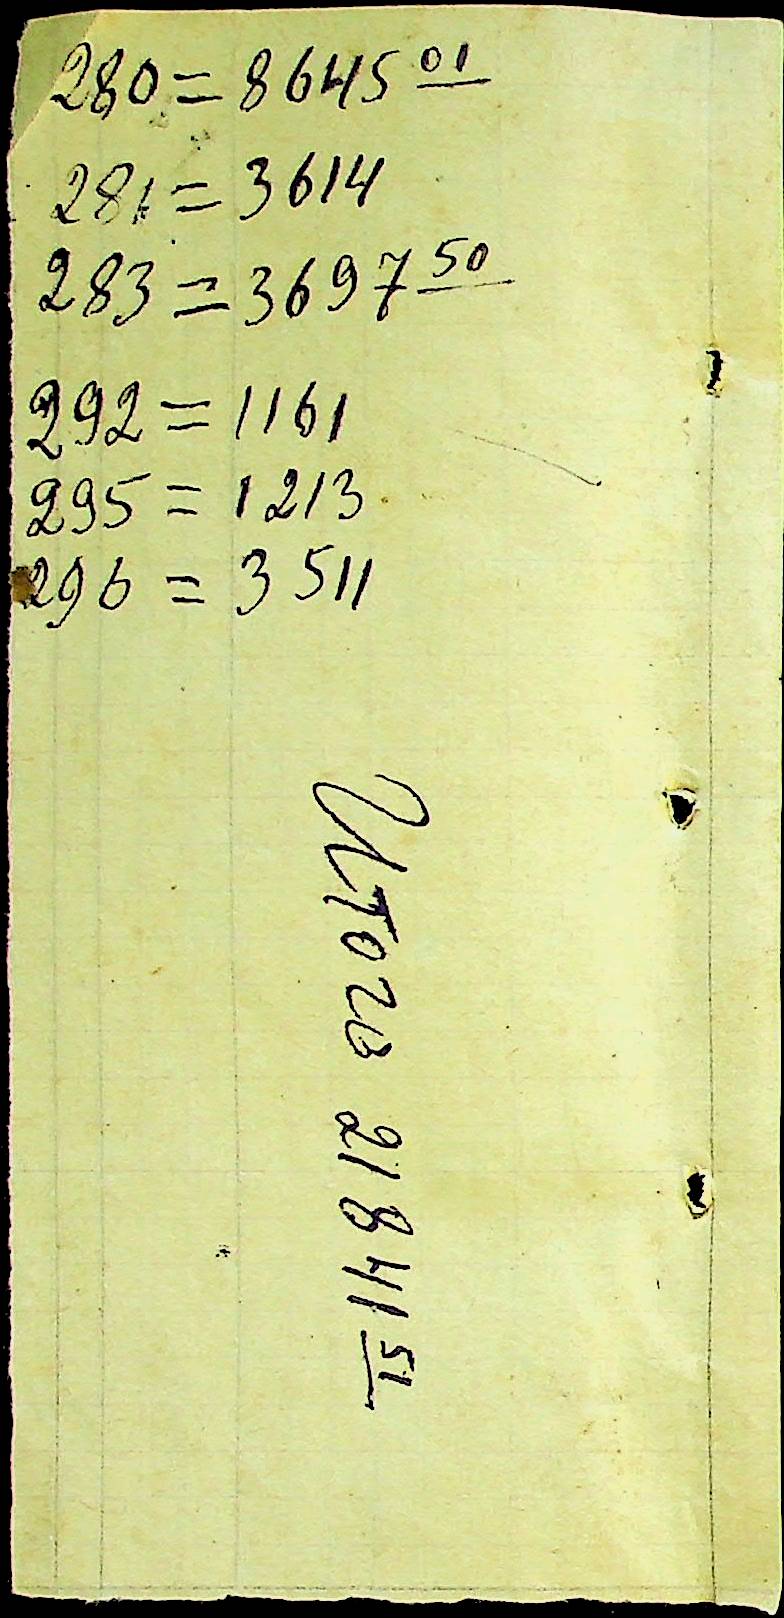 280 = 8645 01
281 = 3614
283 = 3697 50
292 = 1161
295 = 1213
296 = 3511
Итого 21841 51